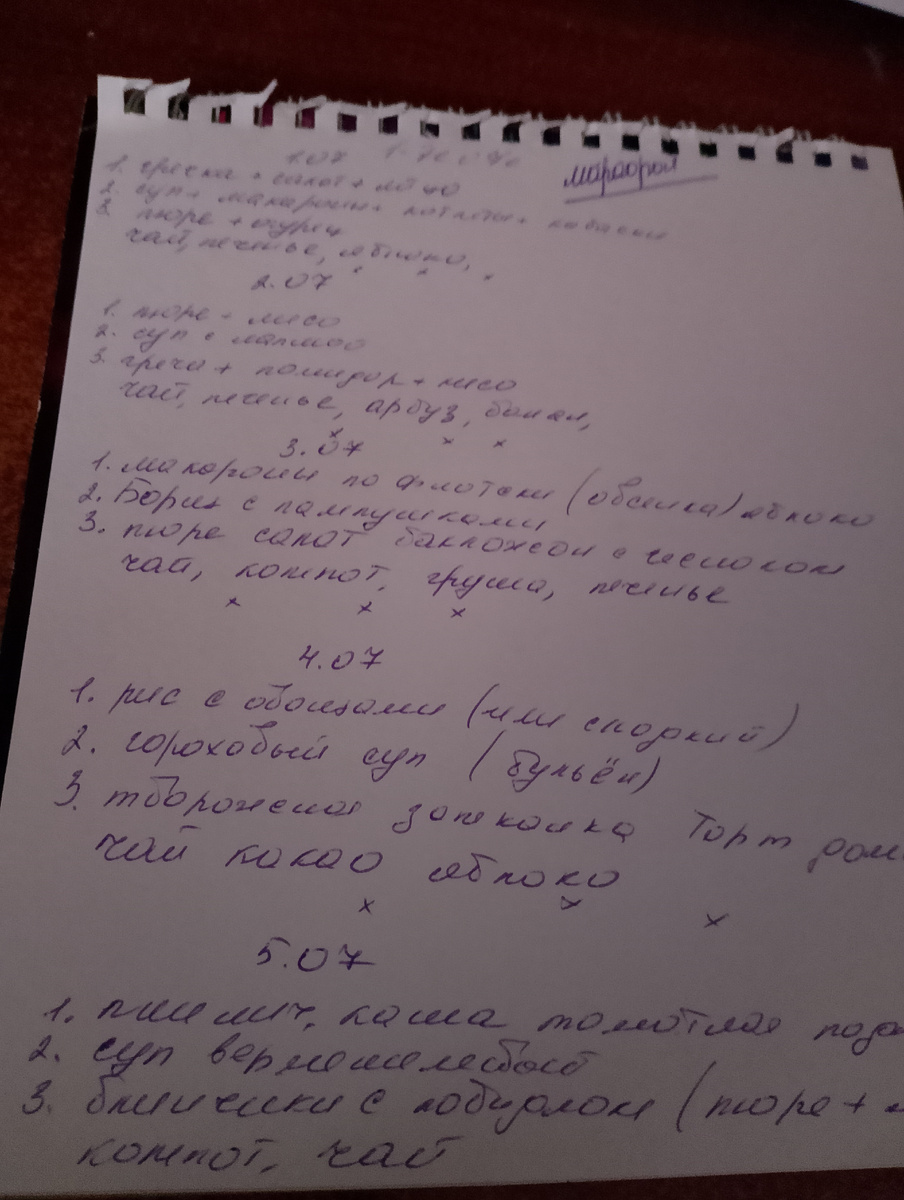 1.07
марафон
1. гречка + салат + мясо
2. суп + макароны + котлеты +
3. пюре + огурец
чай, печенье, яблоко,
2.07
1. пюре + мясо
2. суп с лапшой
3. греча + помидор + мясо
чай, печенье, арбуз, банан,
3.07
1. макароны по флотски (овсянка) яблоко
2. Борщ с пампушками
3. пюре салат баклажан с чесноком
чай, компот, груша, печенье
4.07
1. рис с овощами (или сладкий)
2. гороховый суп (бульён)
3. творожная запеканка Торт
чай какао яблоко
5.07
1. пшенич. каша томатная
2. суп вермешелевый
3. блинчики с повидлом (пюре +
компот, чай